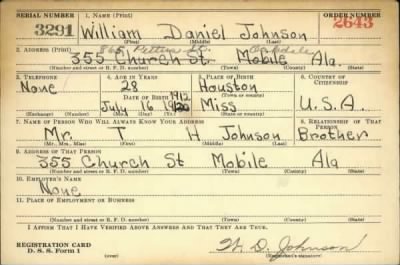 SERIAL NUMBER 1. NAME (Print) ORDER NUMBER
3291 William Daniel Johnson 2643
(First) (Middle) (Last)
2. ADDRESS (Print)
355 Church St. Mobile Ala.
(Number and street or R. F. D. number) (Town) (County) (State)
3. TELEPHONE 4. AGE IN YEARS 5. PLACE OF BIRTH 6. COUNTRY OF CITIZENSHIP
None 28 Houston
DATE OF BIRTH (Town or county)
1912
July 16 Miss U.S.A.
(Exchange) (Number) (Mo.) (Day) (Yr.) (State or country)
7. NAME OF PERSON WHO WILL ALWAYS KNOW YOUR ADDRESS 8. RELATIONSHIP OF THAT PERSON
Mr. T H Johnson Brother
(Mr., Mrs., Miss) (First) (Middle) (Last)
9. ADDRESS OF THAT PERSON
355 Church St Mobile Ala
(Number and street or R. F. D. number) (Town) (County) (State)
10. EMPLOYER'S NAME
None
11. PLACE OF EMPLOYMENT OR BUSINESS
(Number and street or R. F. D. number) (Town) (County) (State)
I AFFIRM THAT I HAVE VERIFIED ABOVE ANSWERS AND THAT THEY ARE TRUE.
REGISTRATION CARD
D. S. S. Form 1 W. D. Johnson
(over) (Registrant's signature)